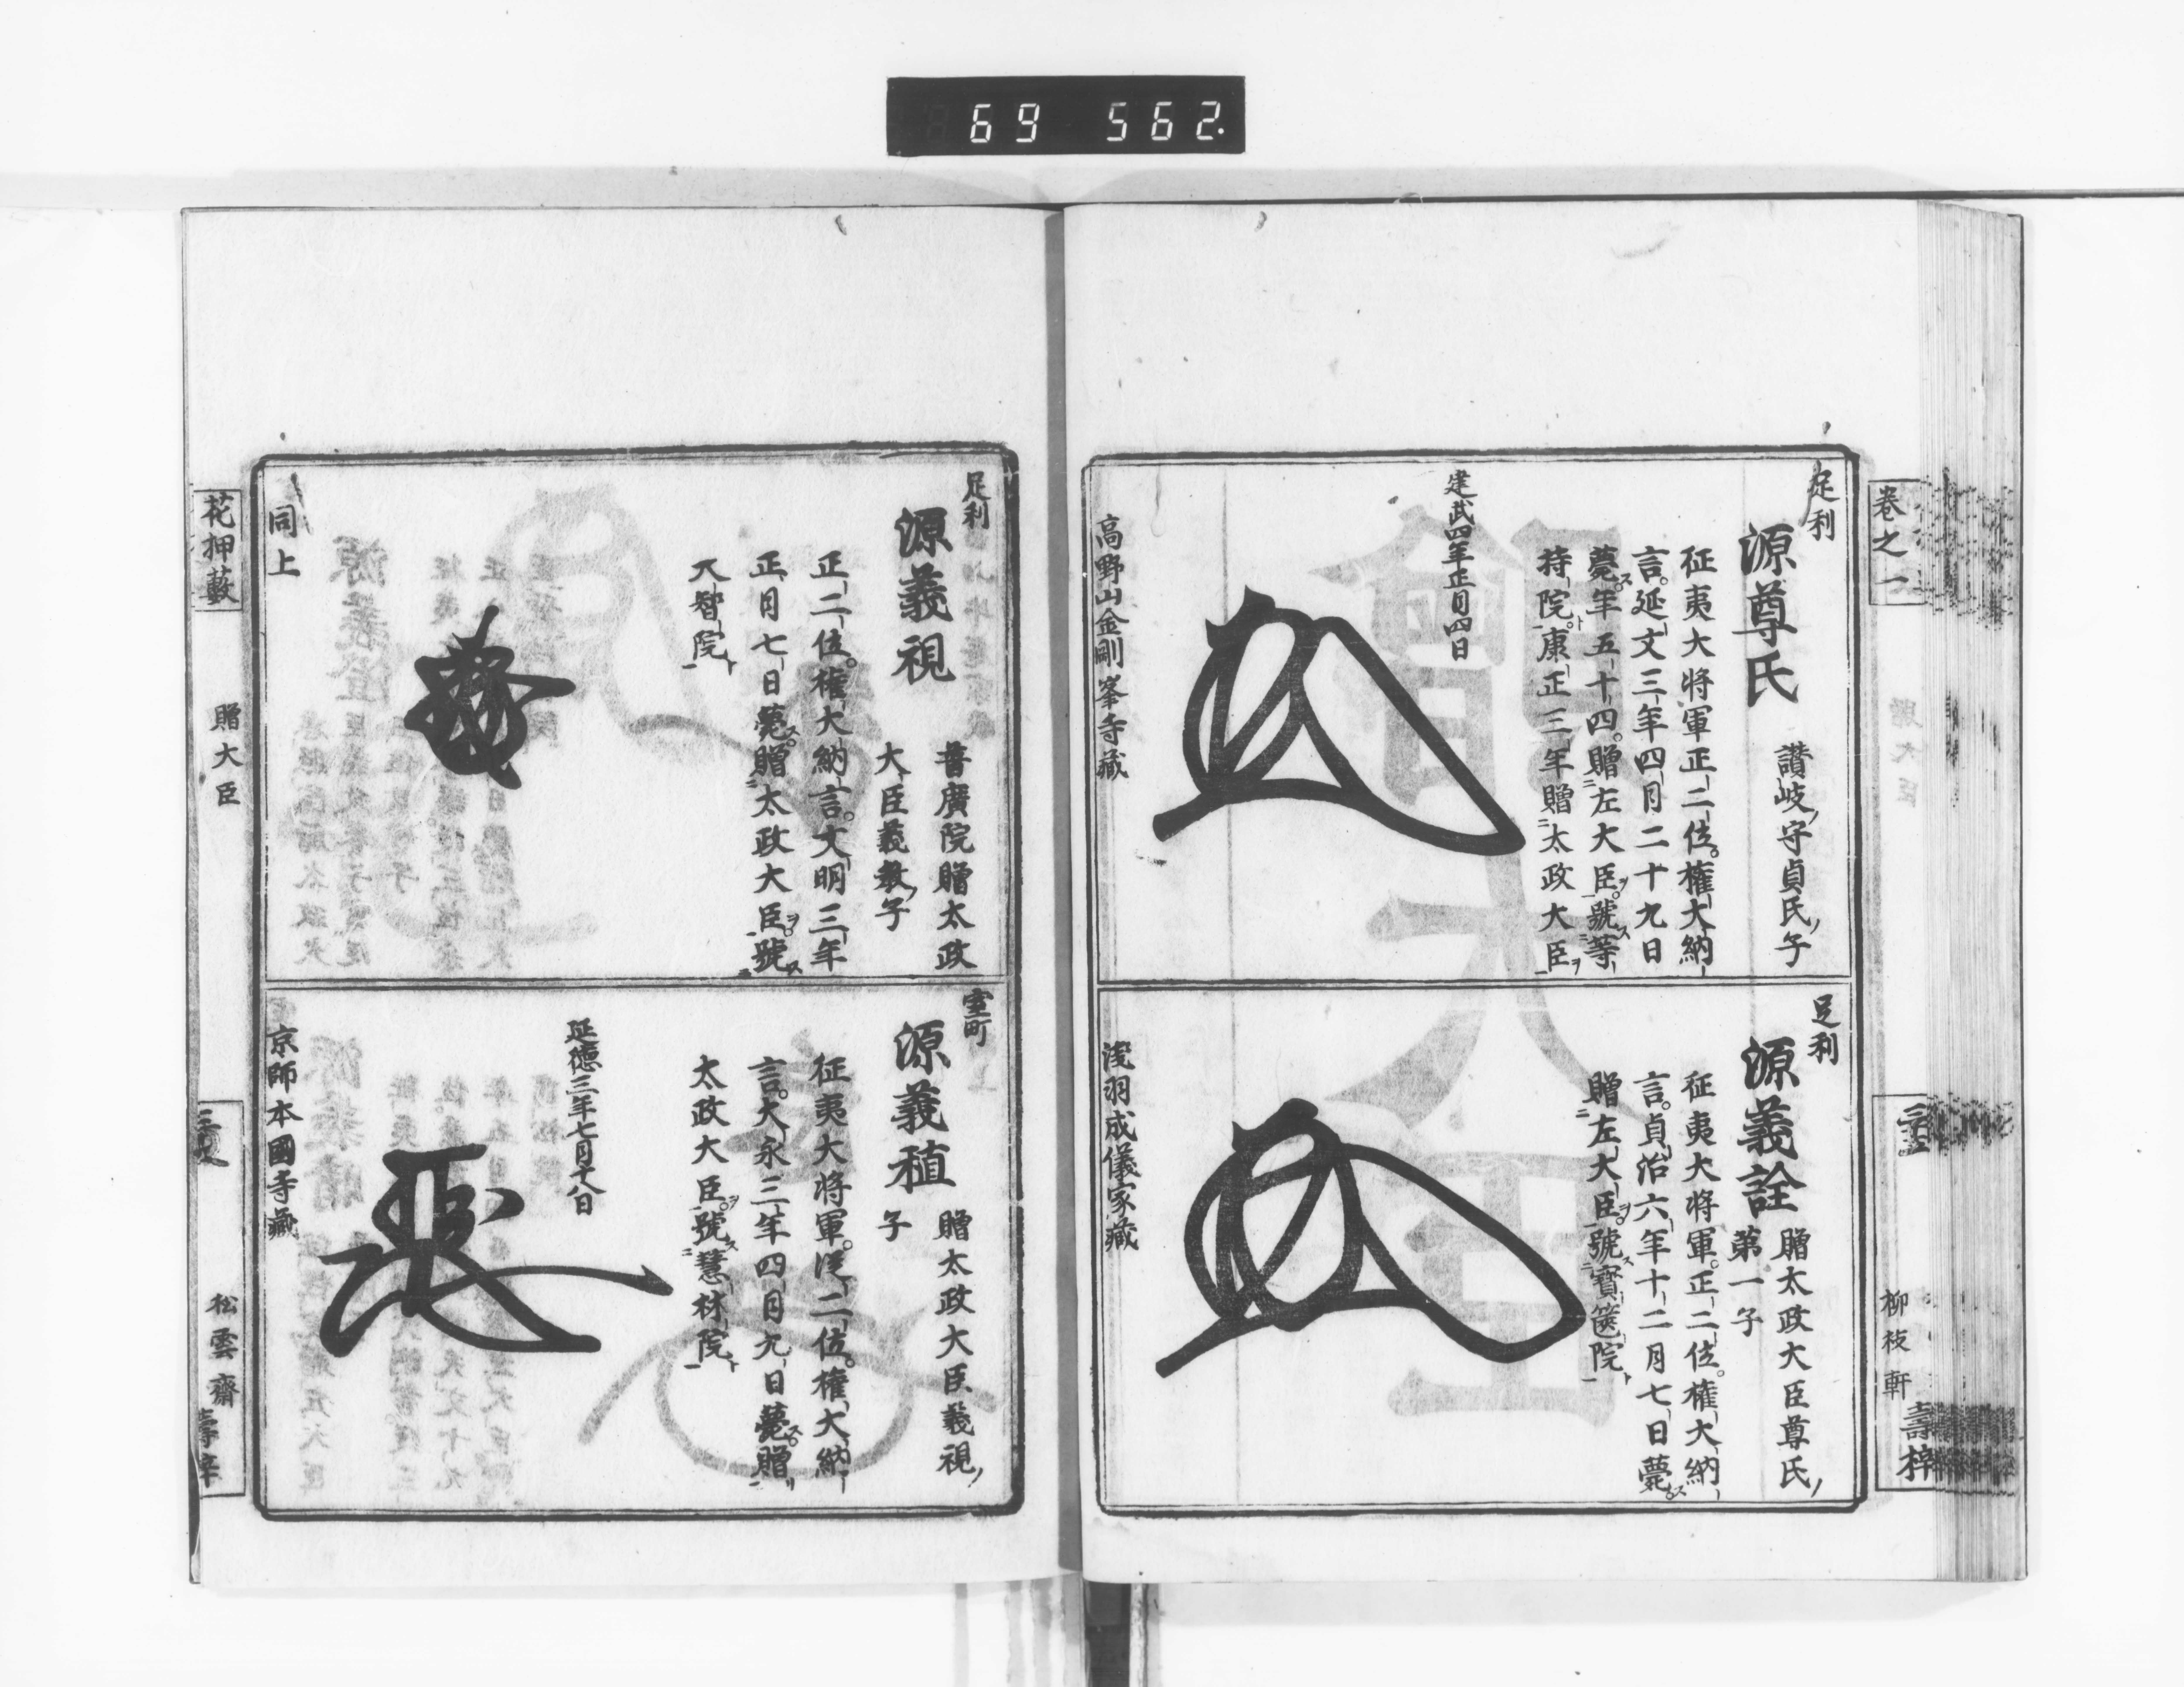 69 562.
卷之一
柳枝軒
壽梓
足利
源尊氏
讃岐守貞氏ノ子
征夷大将軍正二位。權大納
言。延文三年四月二十九日
薨ス。年五十四。贈左大臣ヲ。號ス等
持院ト。康正三年贈太政大臣ヲ
建武四年正月四日
高野山金剛峯寺藏
足利
源義詮
贈太政大臣尊氏ノ
第一子
征夷大将軍。正二位。權大納
言。貞治六年十二月七日薨ス。
贈左大臣ヲ。號ス寳篋院ト
浅羽成儀家藏
足利
源義視
普廣院贈太政
大臣義教ノ子
正二位。權大納言。文明三年
正月七日薨ス。贈太政大臣ヲ。號ス
大智院ト
同上
室町
源義稙
贈太政大臣義視ノ
子
征夷大将軍。從二位。權大納
言。大永三年四月九日薨ス。贈
太政大臣ヲ。號ス慧林院ト
延德三年七月十八日
京師本國寺藏
花押藪
贈大臣
松雲齋
壽梓